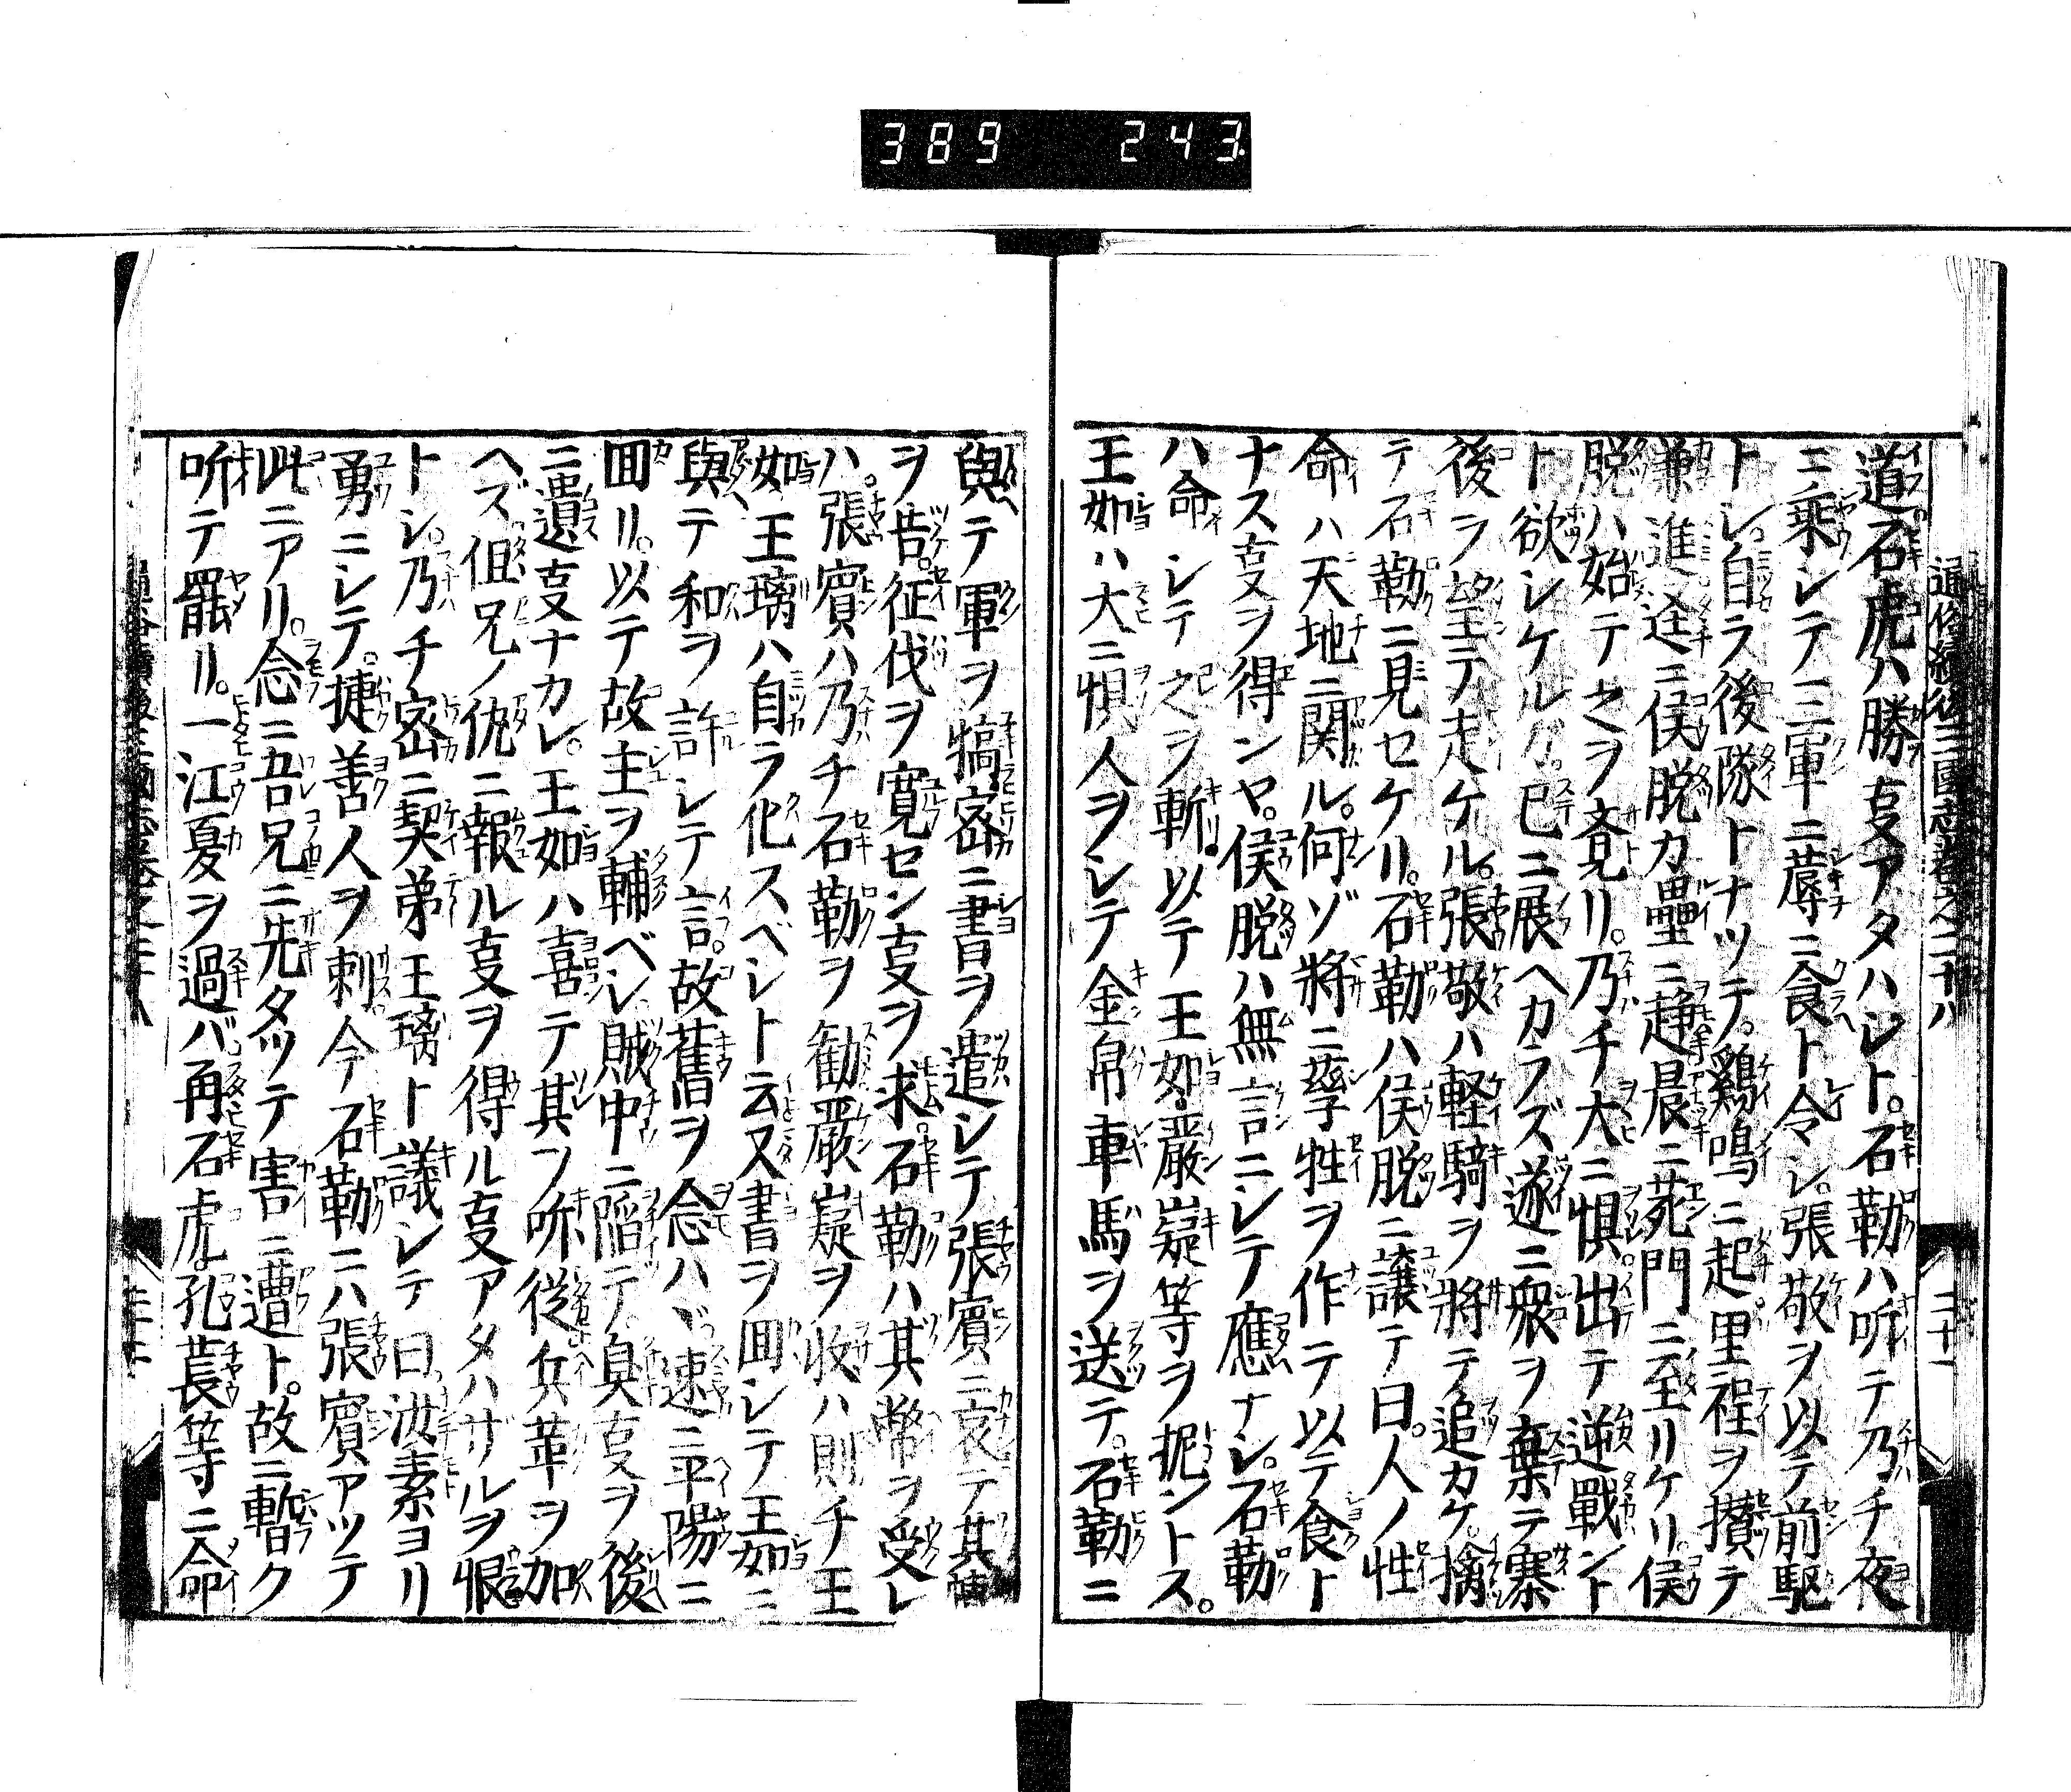 389 243
通俗續後三國志卷之二十八 二十一
道石虎ハ勝叓アタハシト。石勒ハ听テ乃チ夜
ニ乗シテ三軍ニ蓐ニ食ト令シ。張敬ヲ以テ前駆
トシ。自ラ後隊トナツテ。鷄鳴ニ起。里程ヲ攅テ
兼進。逕ニ侯脱カ壘ニ趕晨ニ菀門ニ至リケリ。侯
脱ハ始テ之ヲ覚リ。乃チ大ニ惧。出テ逆戰ント
ト欲シケルガ。已ニ展ヘカラズ遂ニ衆ヲ棄テ寨
後ヲ望テ走ケル。張敬ハ軽騎ヲ將テ追カケ。擒
テ石勒ニ見セケリ。石勒ハ侯脱ニ譲テ曰。人ノ性
命ハ天地ニ関ル。何ゾ將ニ孳牲ヲ作テ以テ食ト
ナス叓ヲ得ンヤ。侯脱ハ無言ニシテ應ナシ。石勒
ハ命シテ之ヲ斬。以テ王如。嚴嶷等ヲ抳ントス。
王如ハ大ニ惧人ヲシテ金帛車馬ヲ送テ。石勒ニ
與テ軍ヲ犒。密ニ書ヲ遣シテ張賓ニ哀テ其情
ヲ告。征伐ヲ寛セン叓ヲ求。石勒ハ其幣ヲ受レ
ハ。張賓ハ乃チ石勒ヲ勧嚴嶷ヲ收ハ則チ王
如王璃ハ自ラ化スベシト云又書ヲ囬シテ王如ニ
與テ和ヲ許シテ言。故舊ヲ念ハヾ速ニ平陽ニ
囬リ。以テ故主ヲ輔ベシ賊中ニ陷テ。臭叓ヲ後
ニ遺叓ナカレ。王如ハ喜テ其ヲ听従兵革ヲ加
ヘズ但兄ノ仇ニ報ル叓ヲ得ル叓アタハザルヲ恨
トシ。乃チ密ニ契弟王璃ト議シテ曰。汝素ヨリ
勇ニシテ。捷善人ヲ刺。今石勒ニハ張賓アツテ
此ニアリ。念ニ吾兄ニ先タツテ害ニ遭ト。故ニ暫ク
听テ罷リ。一江夏ヲ過バ再石虎。孔萇等ニ命